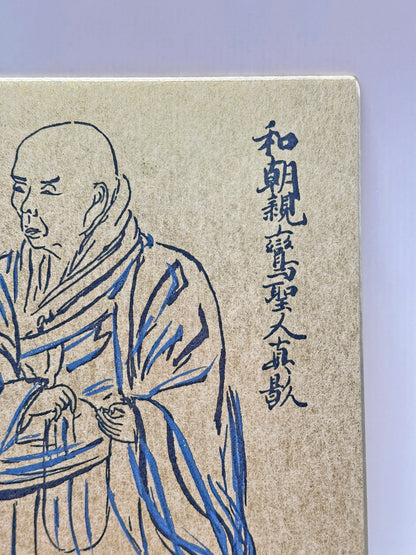 和朝親鸞聖人真影